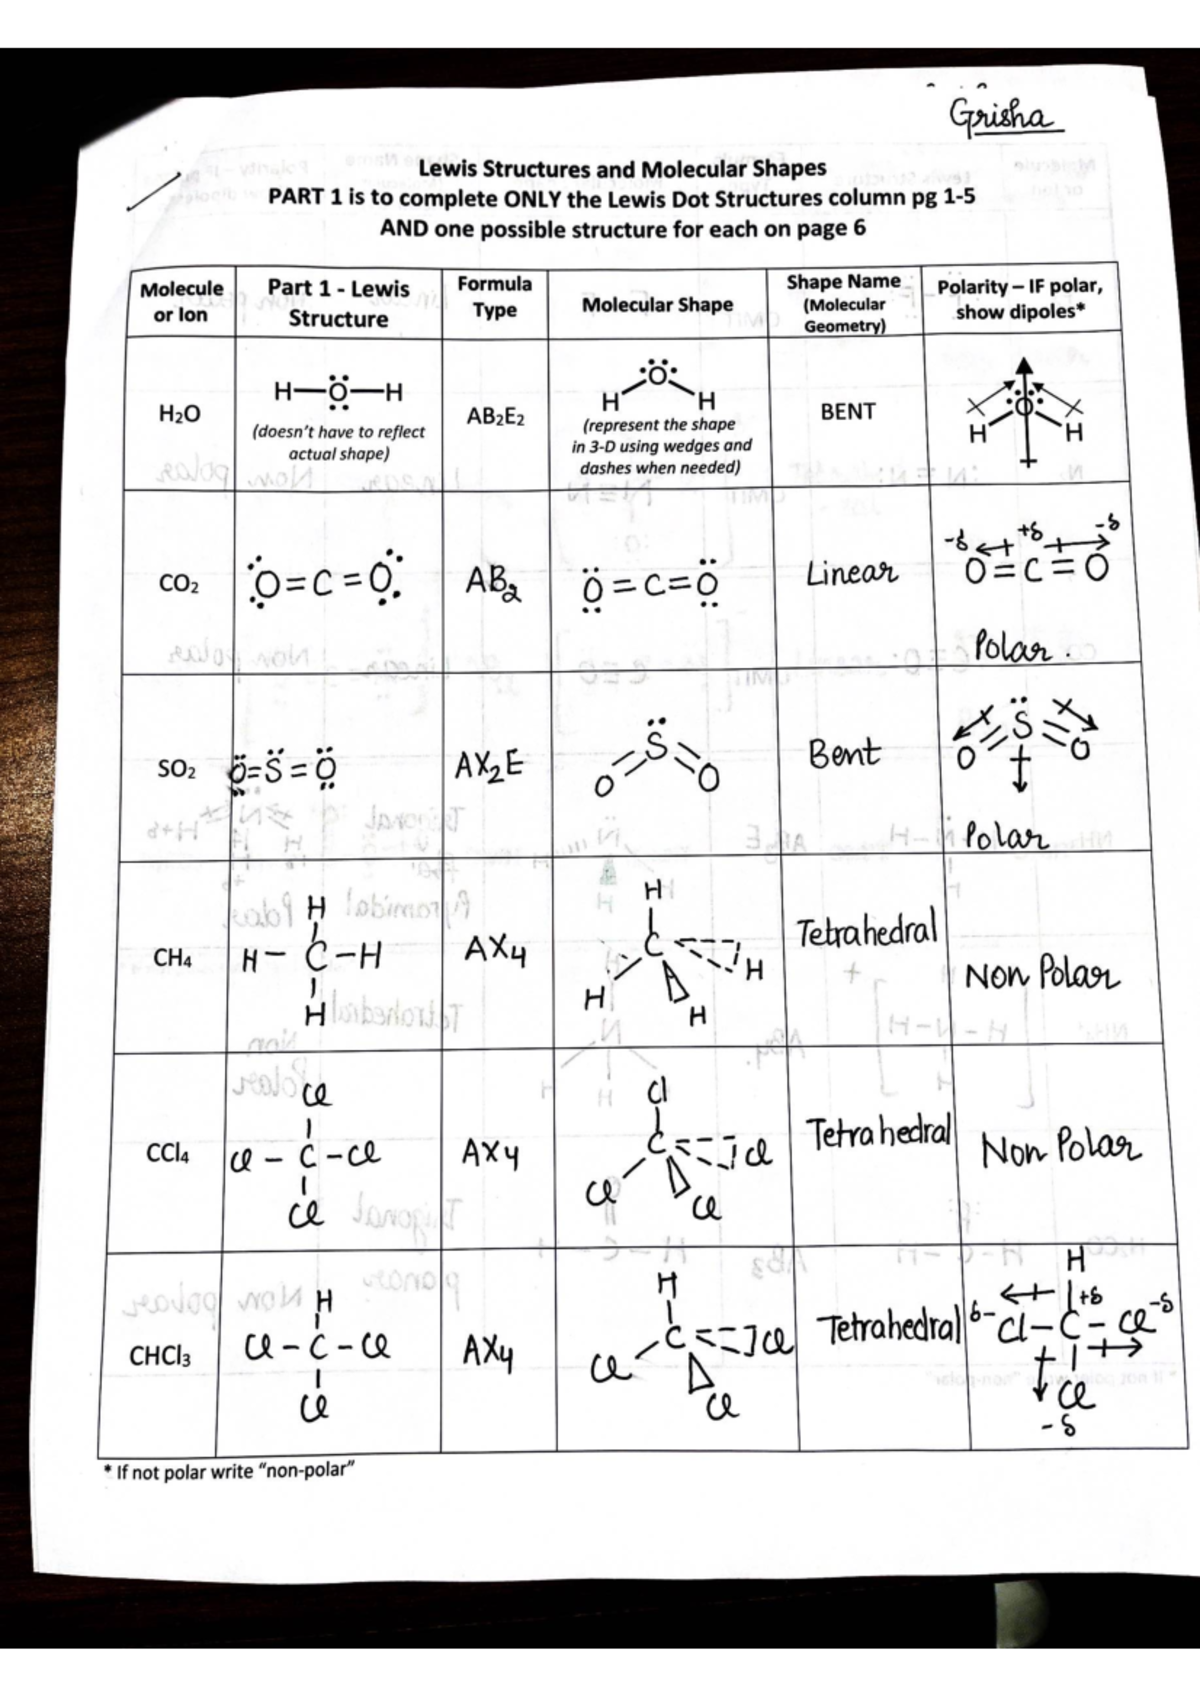 Grisha
Lewis Structures and Molecular Shapes
PART 1 is to complete ONLY the Lewis Dot Structures column pg 1-5
AND one possible structure for each on page 6
Molecule or Ion
Part 1 - Lewis Structure
Formula Type
Molecular Shape
Shape Name (Molecular Geometry)
Polarity – IF polar, show dipoles*
H₂O
H—O—H
(doesn't have to reflect
actual shape)
AB₂E₂
O
H H
(represent the shape
in 3-D using wedges and
dashes when needed)
BENT
O
H H
CO₂
O=C=O
AB₂
O=C=O
Linear
-δ +δ -δ
O=C=O
Polar
SO₂
O=S=O
AX₂E
S
O O
Bent
S
O O
Polar
CH₄
H
H-C-H
H
AX₄
H
C
H H
H
Tetrahedral
Non Polar
CCl₄
Cl
Cl-C-Cl
Cl
AX₄
Cl
C Cl
Cl Cl
Tetrahedral
Non Polar
CHCl₃
H
Cl-C-Cl
Cl
AX₄
H
C Cl
Cl
Cl
Tetrahedral
H
+δ
δ- Cl-C-Cl -δ
Cl
-δ
* If not polar write "non-polar"